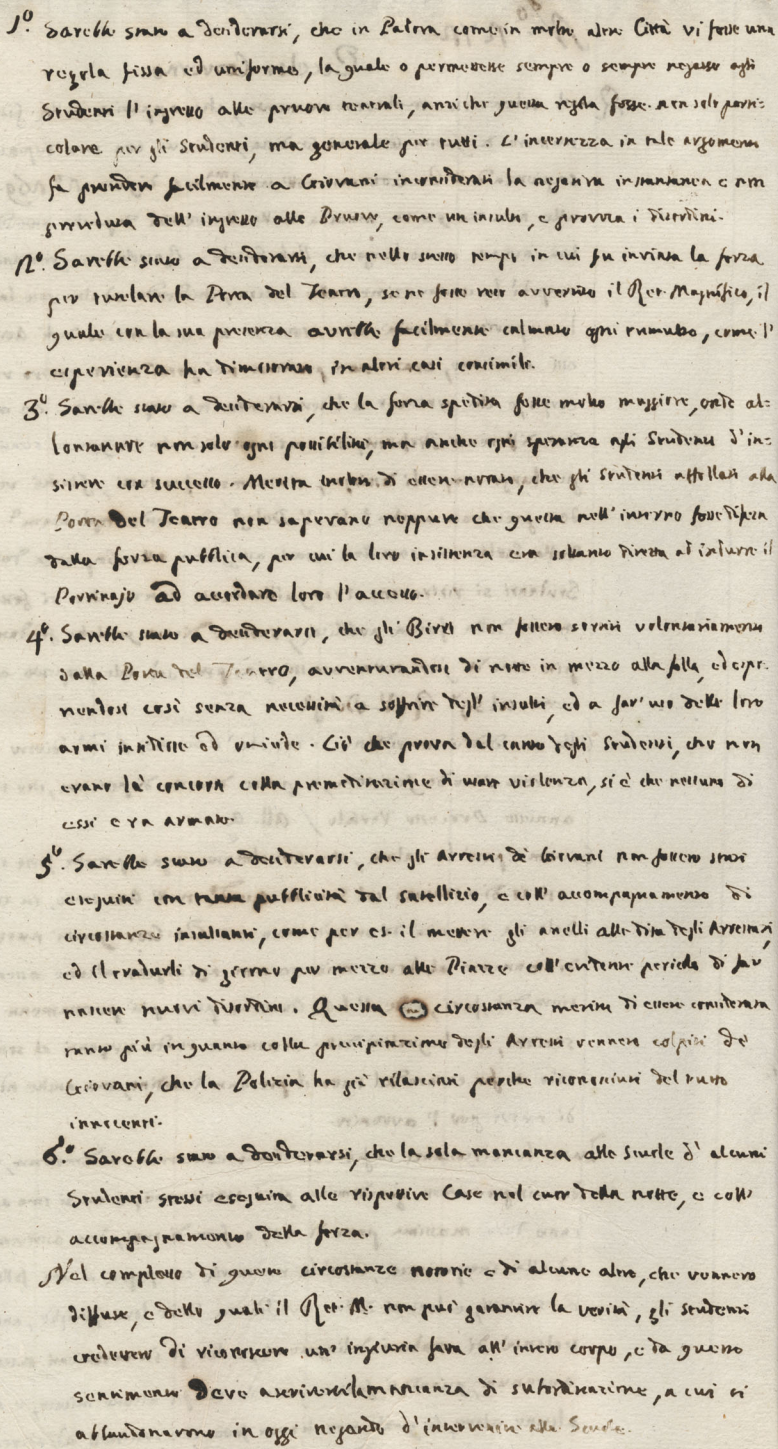 1º. Sarebbe stato a desiderarsi, che in Padova come in molte altre Città vi fosse una
regola fissa ed uniforme, la quale o permettesse sempre o sempre negasse agli
Studenti l'ingresso alle pruove teatrali, anzi che questa regola fosse non solo parti-
colare per gli Studenti, ma generale per tutti. L'incertezza in tale argomento
fa prendere facilmente a Giovani inconsiderati la negativa instantanea e non
preveduta dell'ingresso alle Pruove, come un insulto, e provoca i disordini.
2º. Sarebbe stato a desiderarsi, che nello stesso tempo in cui fu inviata la forza
per tutelare la Porta del Teatro, se ne fosse reso avvertito il Ret. Magnifico, il
quale con la sua presenza avrebbe facilmente calmato ogni tumulto, come l'
esperienza ha dimostrato in altri casi consimili.
3º. Sarebbe stato a desiderarsi, che la forza spedita fosse molto maggiore, onde al=
lontanare non solo ogni possibilità, ma anche ogni speranza agli Studenti d'in=
sistere con successo. Merita inoltre di essere notato, che gli Studenti affollati alla
Porta del Teatro non sapevano neppure che questa nell'interno fosse difesa
dalla forza pubblica, per cui la loro insistenza era soltanto diretta ad indurre il
Portinajo ad accordare loro l'accesso.
4º. Sarebbe stato a desiderarsi, che gli Birri non fossero sortiti volontariamente
dalla Porta del Teatro, avventurandosi di notte in mezzo alla folla, ed espo-
nendosi così senza necessità a soffrire degl'insulti, ed a far'uso delle loro
armi insidiose ed omicide. Ciò che prova dal canto degli Studenti, che non
erano là concorsi colla premeditazione di usare violenza, si è che nessuno di
essi era armato.
5º. Sarebbe stato a desiderarsi, che gli Arresti de' Giovani non fossero stati
eseguiti con tanta pubblicità dal satellizio, e coll'accompagnamento di
circostanze insultanti, come per es. il mettere gli anelli alle dita degli Arrestati,
ed il tradurli di giorno per mezzo alle Piazze coll'evidente pericolo di far
nascere nuovi disordini. Questa circostanza merita di essere considerata
tanto più in quanto colla precipitazione degli Arresti vennero colpiti de'
Giovani, che la Polizia ha già rilasciati perche riconosciuti del tutto
innocenti.
6º. Sarebbe stato a desiderarsi, che la sola mancanza alle Scuole d'alcuni
Studenti stessi eseguita alle rispettive Case nel cuor della notte, e coll'
accompagnamento della forza.
Nel complesso di queste circostanze notorie e di alcune altre, che vennero
diffuse, e delle quali il Ret. M. non può garantire la verità, gli studenti
credettero di riconoscere un'ingiuria fatta all'intero corpo, e da questo
sentimento deve ascriversi la mancanza di subordinazione, a cui si
abbandonarono in oggi negando d'intervenire alle Scuole.